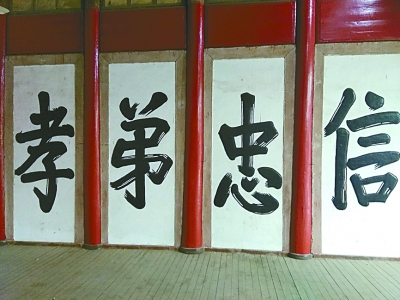 孝
弟
忠
信